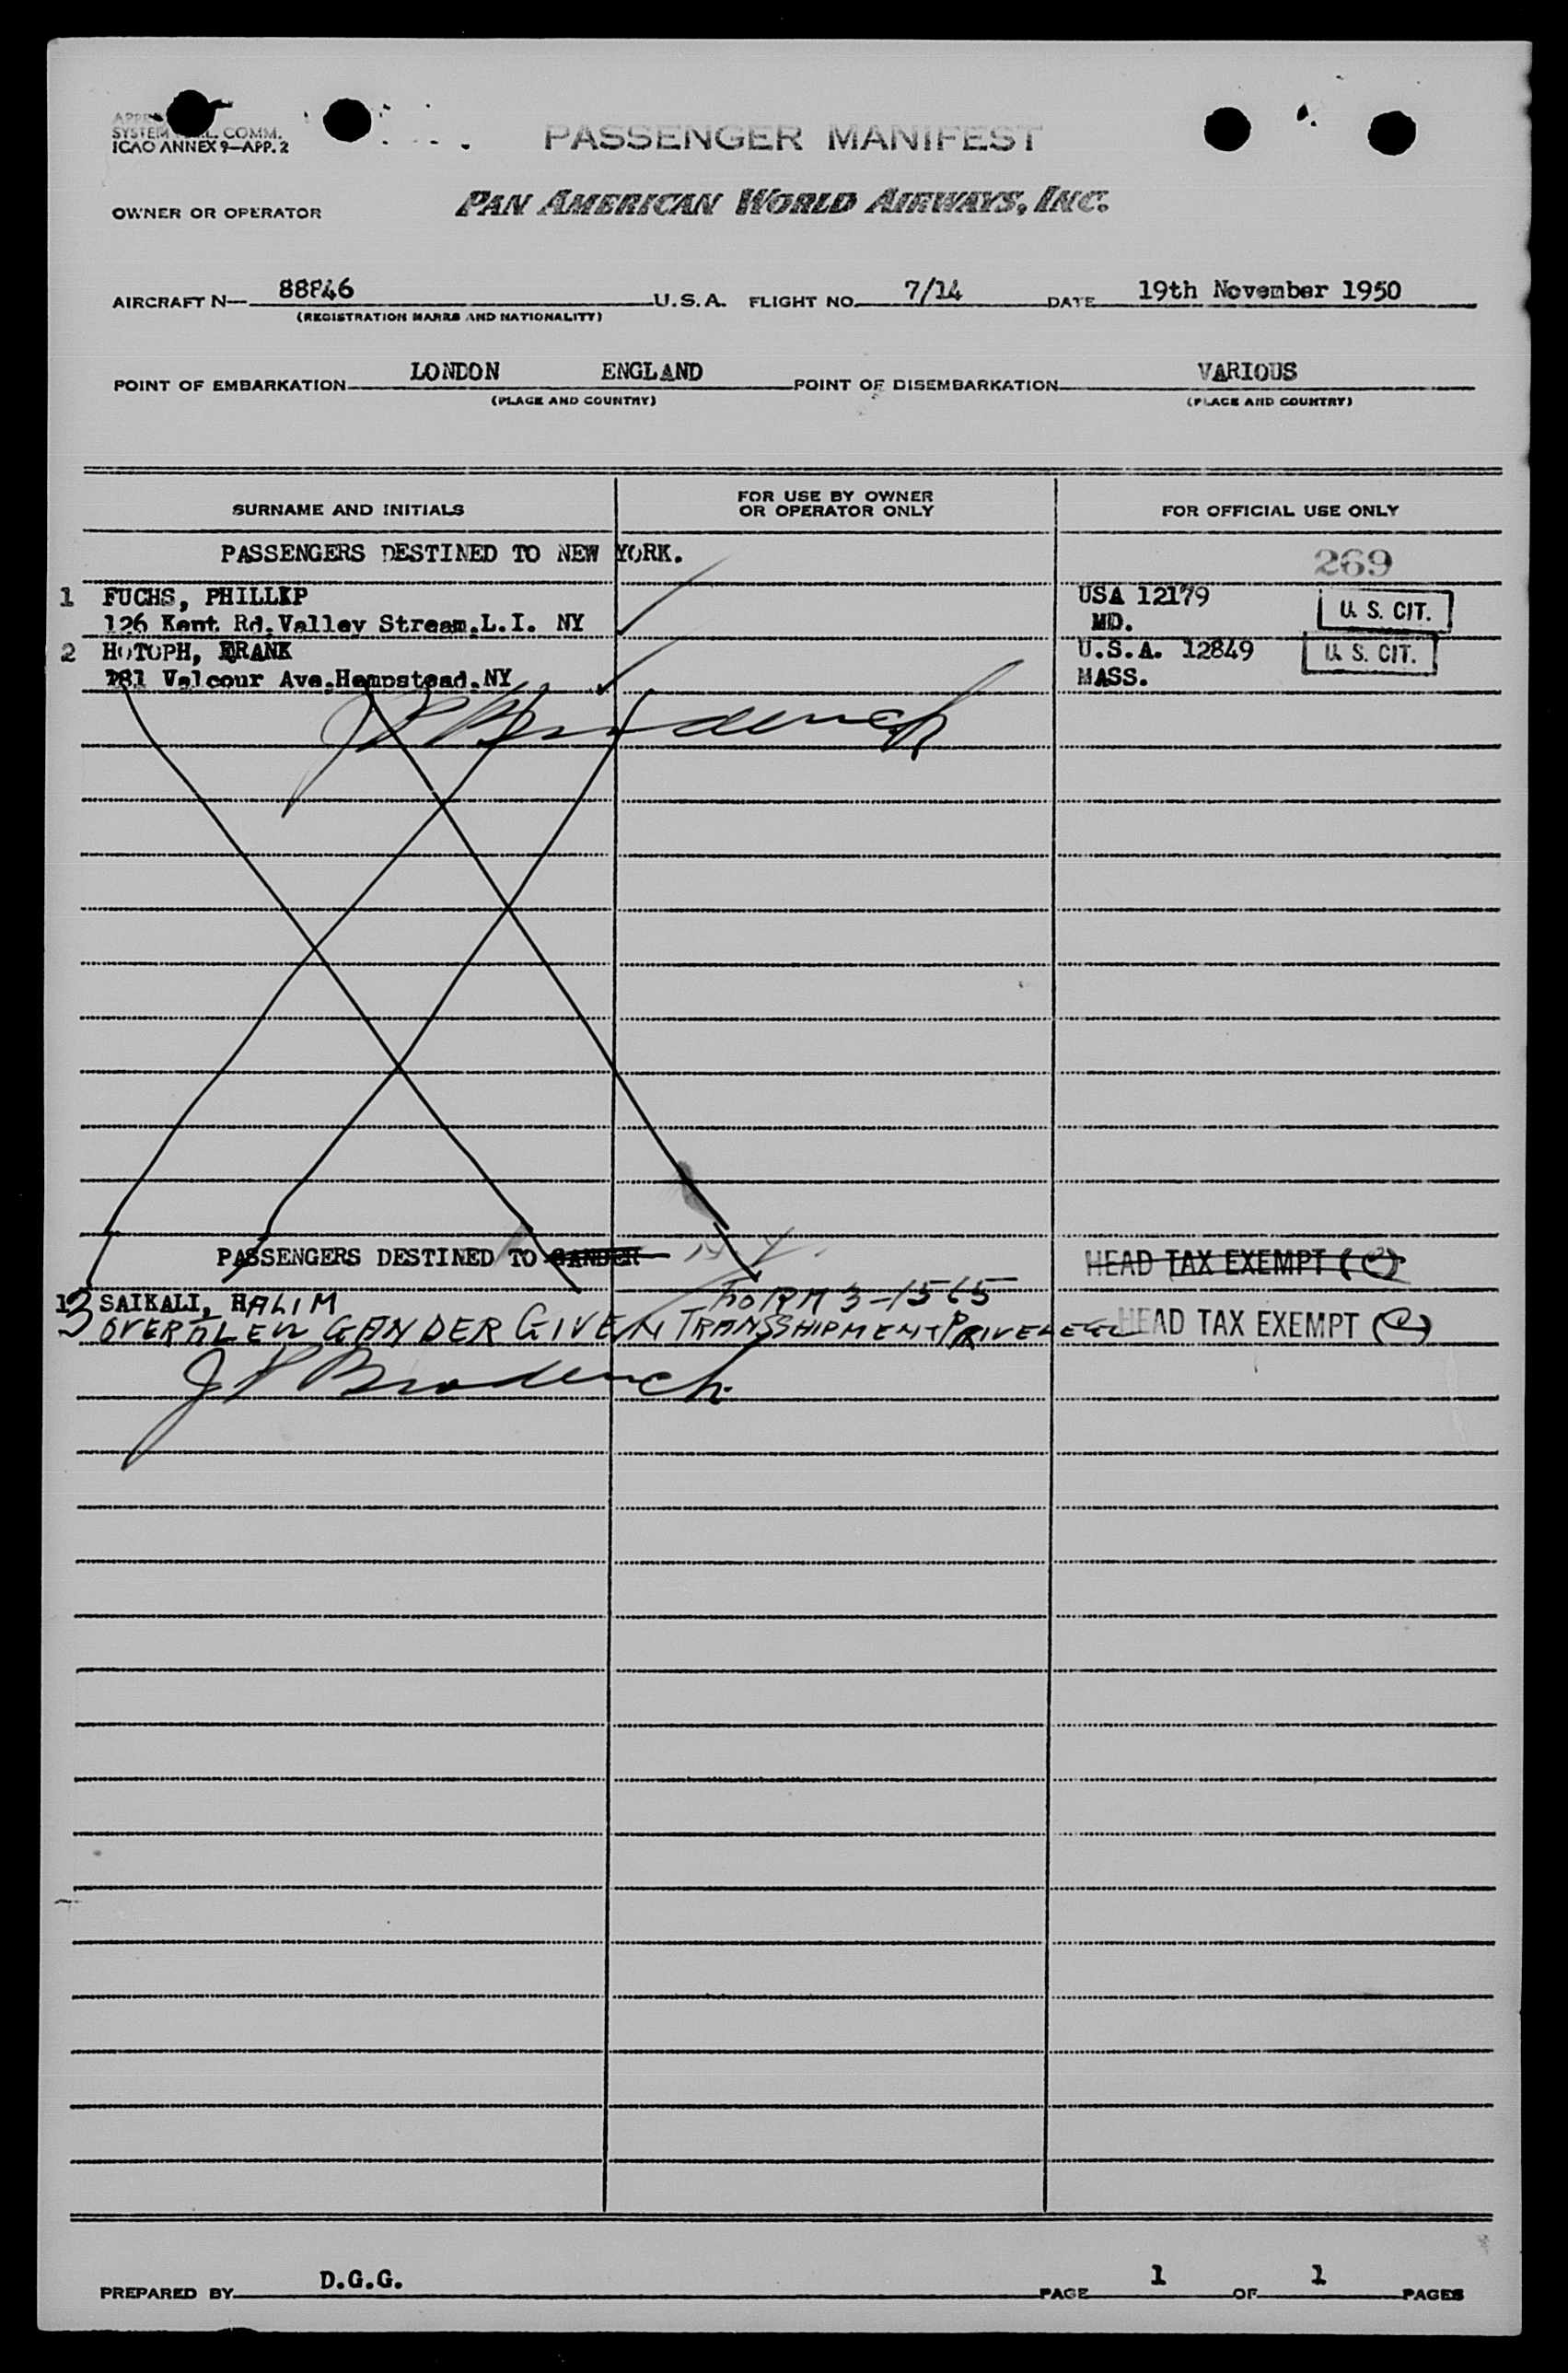 SYSTEM COMM.
ICAO ANNEX 9—APP. 2
PASSENGER MANIFEST
OWNER OR OPERATOR PAN AMERICAN WORLD AIRWAYS, INC.
AIRCRAFT N— 88846 U.S.A. FLIGHT NO. 7/14 DATE 19th November 1950
(REGISTRATION MARKS AND NATIONALITY)
POINT OF EMBARKATION LONDON ENGLAND POINT OF DISEMBARKATION VARIOUS
(PLACE AND COUNTRY) (PLACE AND COUNTRY)
SURNAME AND INITIALS FOR USE BY OWNER OR OPERATOR ONLY FOR OFFICIAL USE ONLY
PASSENGERS DESTINED TO NEW YORK. 269
1 FUCHS, PHILLIP USA 12179 U. S. CIT.
126 Kent Rd.Valley Stream.L.I. NY MD.
2 HOTOPH, FRANK U.S.A. 12849 U. S. CIT.
181 Valcour Ave.Hempstead.NY MASS.
J P Broderick
PASSENGERS DESTINED TO GANDER N.Y. HEAD TAX EXEMPT (e)
3 SAIKALI, HALIM FORM 3-1565
GANDER GIVEN TRANSSHIPMENT PRIVELEGE HEAD TAX EXEMPT (e)
J P Broderick
PREPARED BY D.G.G. PAGE 1 OF 1 PAGES